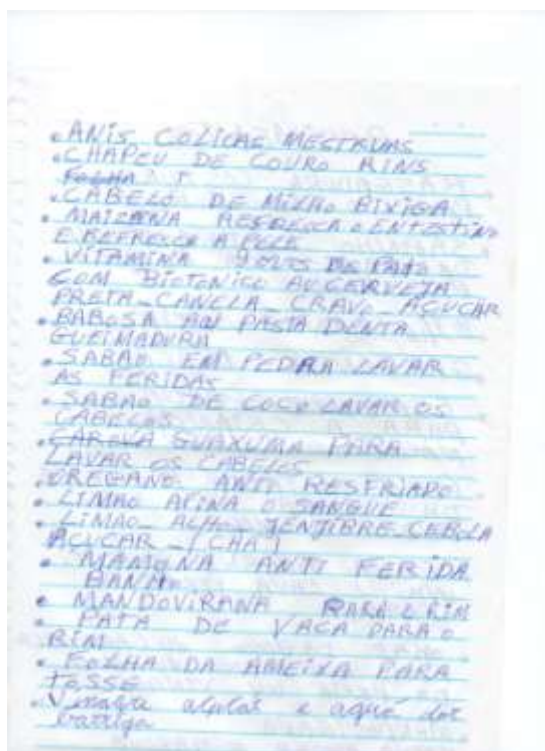 • ANIS COLICAS MESTRUAS
• CHAPEU DE COURO RINS
FOLHA
• CABELO DE MILHO BIXIGA
• MAIZENA REFRESCA O ENTESTINO
E REFRESCA A PELE
• VITAMINA OVOS DE PATO
COM BIOTONICO CERVEJA
PRETA - CANELA - CRAVO - AÇUCAR
• BABOSA PASTA DENTA
QUEIMADURA
• SABAO EM PEDRA LAVAR
AS FERIDAS
• SABAO DE COCO LAVAR OS
CABELOS
• GUAXUMA PARA
LAVAR OS CABELOS
• OREGANO ANTI RESFRIADO
• LIMAO AFINA O SANGUE
• LIMAO - ALHO - JENJIBRE - CEBOLA
AÇUCAR - (CHA)
• MAMONA ANTI FERIDA
BANHO
• MANDOVIRANA PARA RIM
• PATA DE VACA PARA O
RIM
• FOLHA DA AMEIXA PARA
TOSSE
• Vinagre e agua dor
barriga